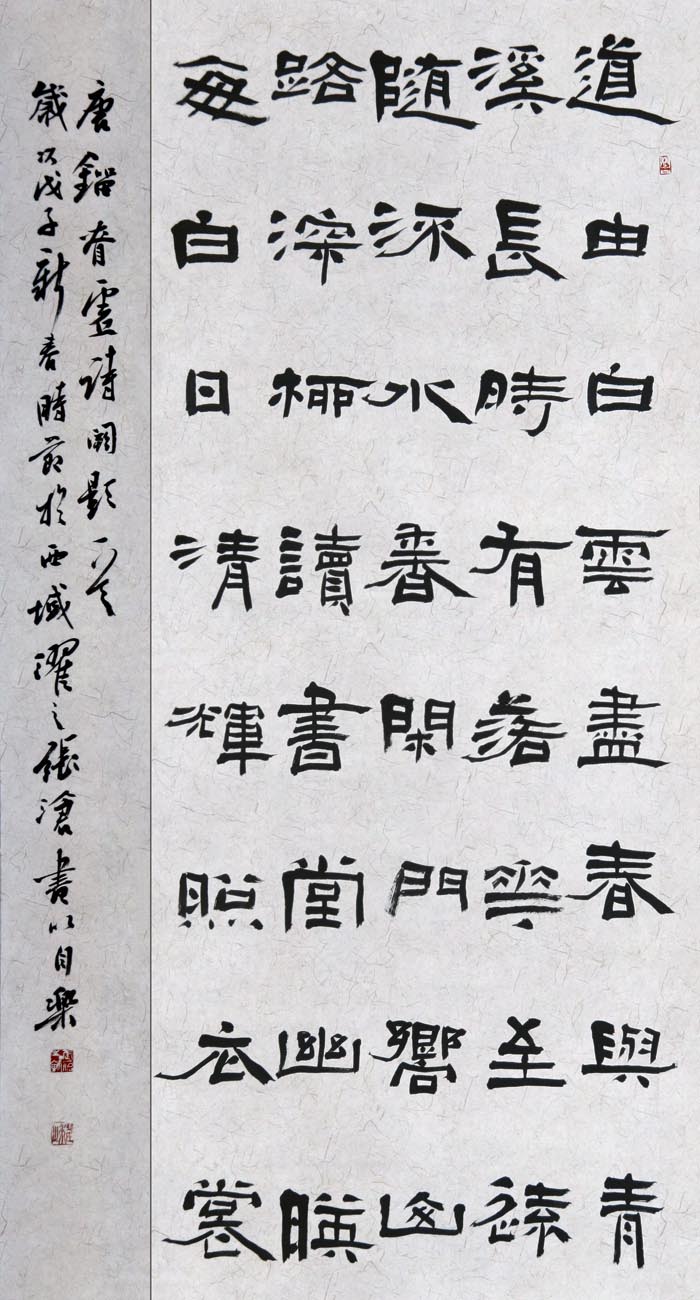 道由白雲盡春與青
溪長時有落華至遠
隨流水香閑門嚮山
路深柳讀書堂幽暎
每白日清輝照衣裳
唐鎦眘虛詩闕題一首
歲次戊子新春時節於西域濯之張滄書以自樂